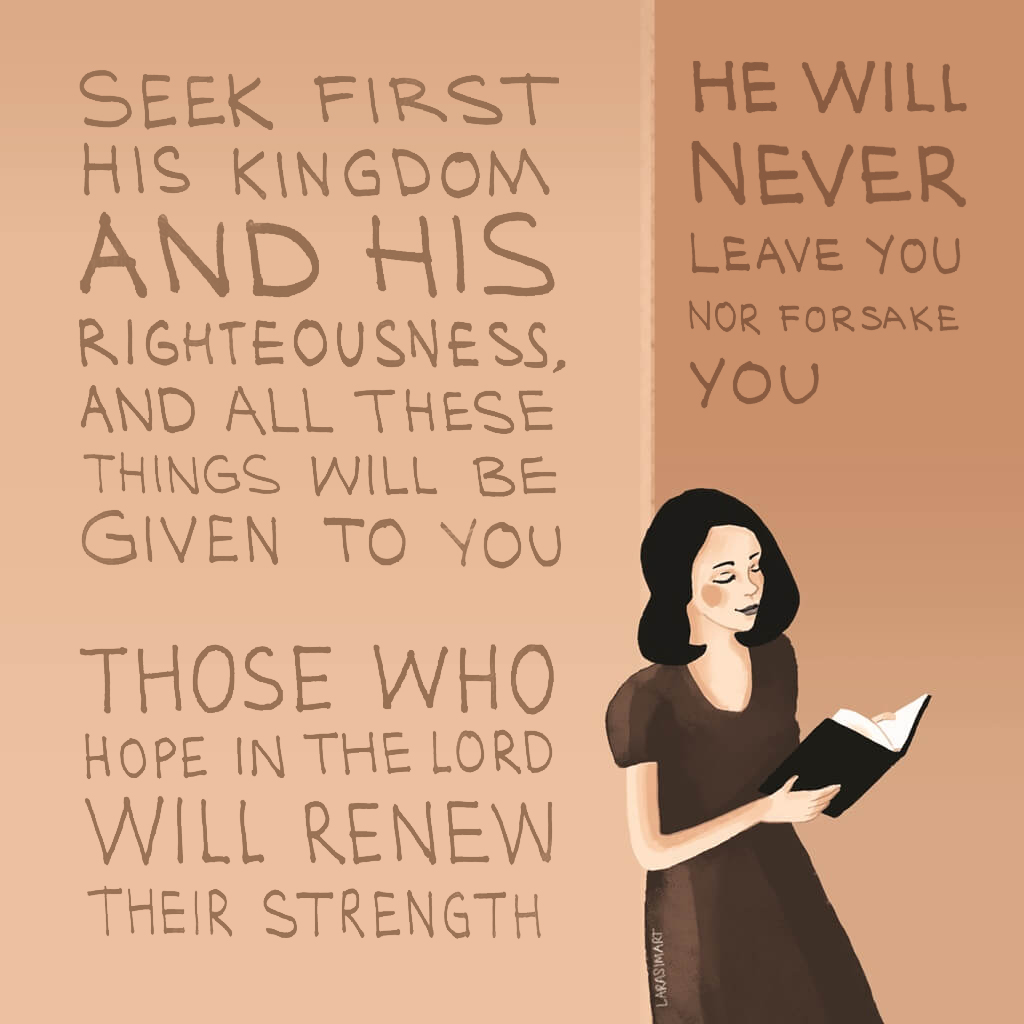 SEEK FIRST
HIS KINGDOM
AND HIS
RIGHTEOUSNESS,
AND ALL THESE
THINGS WILL BE
GIVEN TO YOU
THOSE WHO
HOPE IN THE LORD
WILL RENEW
THEIR STRENGTH
HE WILL
NEVER
LEAVE YOU
NOR FORSAKE
YOU
LARASIMART